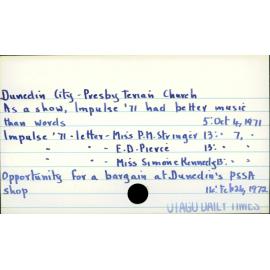 Dunedin City - Presby Terian Church
As a show, Impulse '71 had better music
than words 5: Oct 4, 1971
Impulse '71 - letter - Miss P.M. Stringer 13: - 7, -
- - - E.D. Pierce 13: - -
- - - Miss Simone Kennedy 13: - -
Opportunity for a bargain at Dunedin's PSSA
shop 14: Feb 24, 1972
OTAGO DAILY TIMES